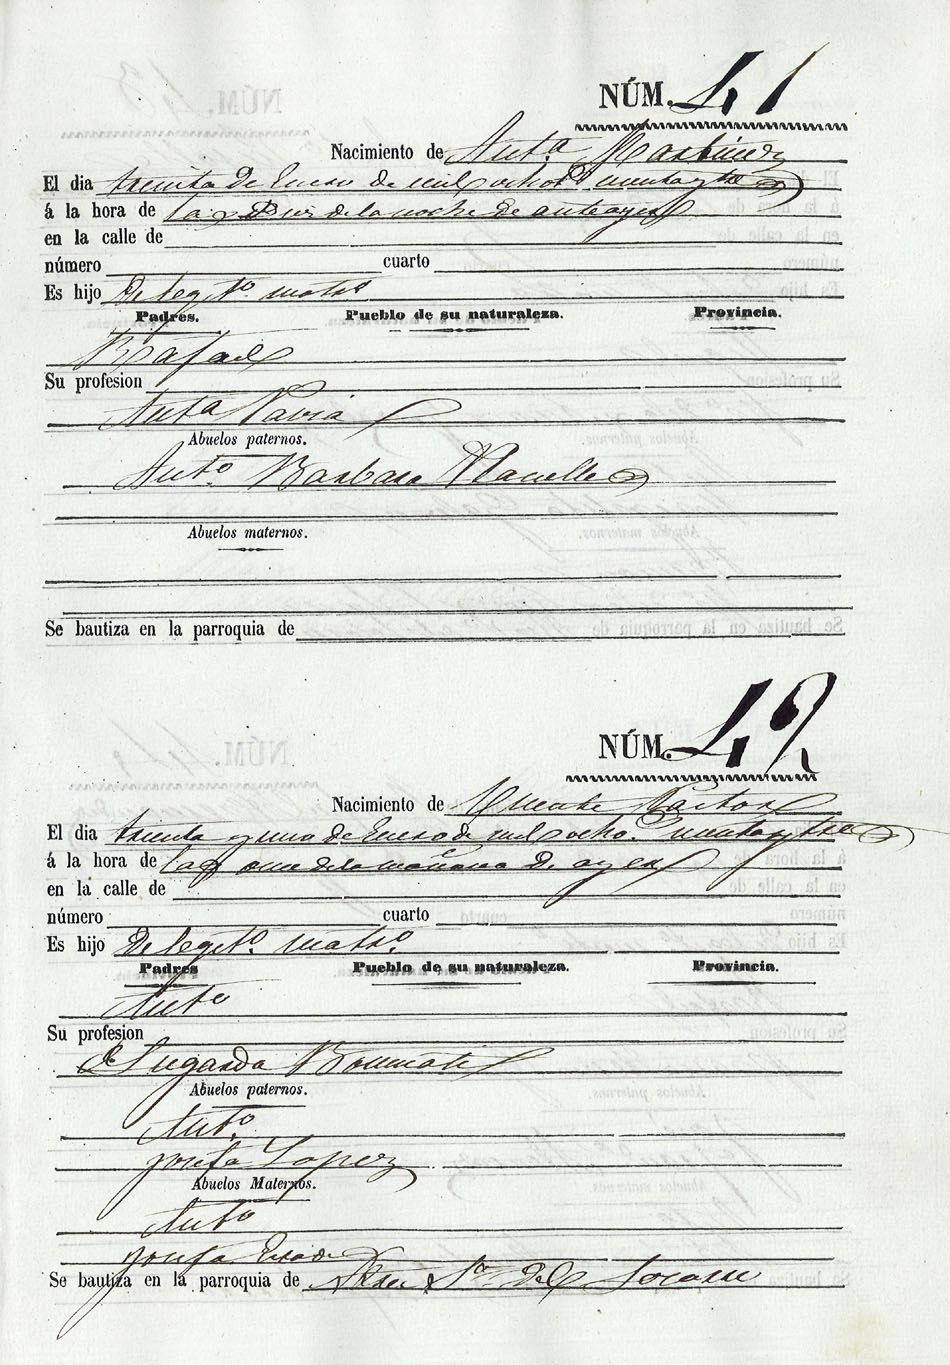 NÚM. 41
Nacimiento de Ant.a Martinez
El dia treinta de Enero de mil ochos
á la hora de las Diez de la noche de anteayer
en la calle de
número cuarto
Es hijo De legit.o matr.o
Padres. Pueblo de su naturaleza. Provincia.
Rafael
Su profesion
Ant.a
Abuelos paternos.
Ant.o Barbara
Abuelos maternos.
Se bautiza en la parroquia de
NÚM. 42
Nacimiento de Vicente Pastor
El dia treinta y uno de Enero de mil ocho.
á la hora de las once de la mañana De ayer
en la calle de
número cuarto
Es hijo De legit.o matr.o
Padres Pueblo de su naturaleza. Provincia.
Ant.o
Su profesion
Lugarda
Abuelos paternos.
Ant.o
Josefa Lopez
Abuelos Maternos.
Ant.o
Josefa
Se bautiza en la parroquia de Ntra S.a Del Socorro